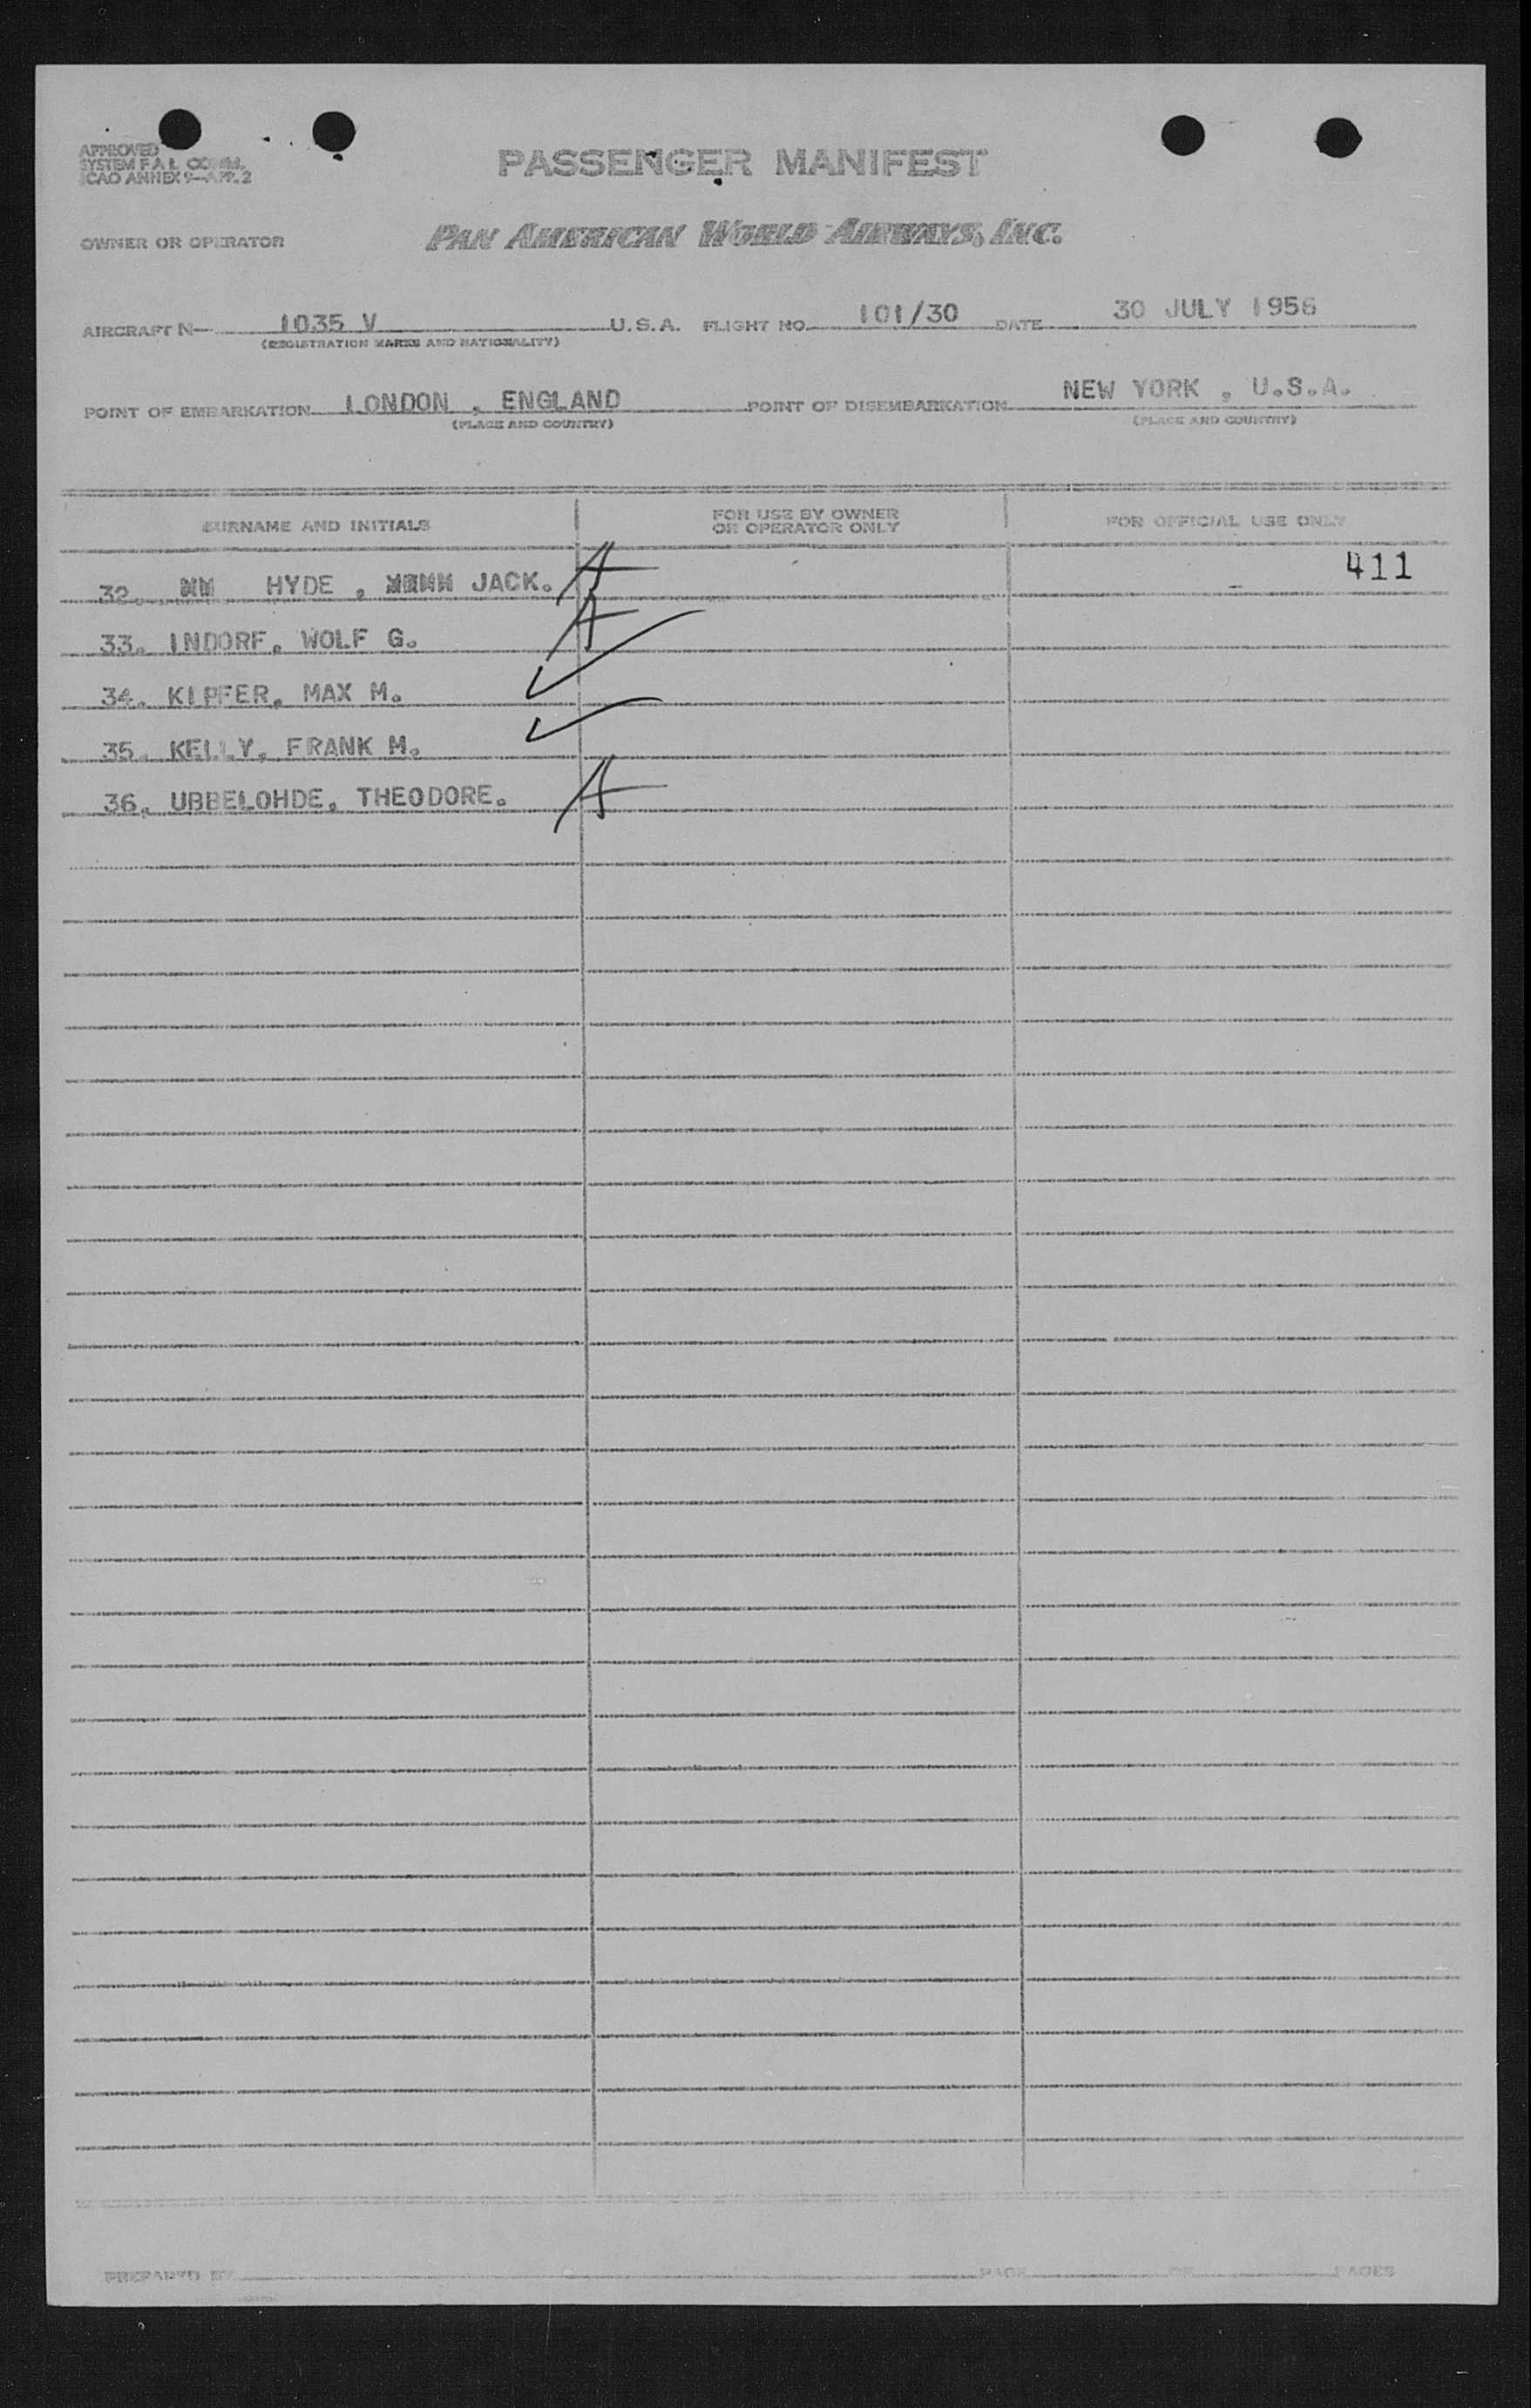 APPROVED
SYSTEM F.A.L. COMM.
ICAO ANNEX 9—APP. 2
PASSENGER MANIFEST
OWNER OR OPERATOR PAN AMERICAN WORLD AIRWAYS, INC.
AIRCRAFT N— 1035 V U.S.A. FLIGHT NO. 101/30 DATE 30 JULY 1956
(REGISTRATION MARKS AND NATIONALITY)
POINT OF EMBARKATION LONDON , ENGLAND POINT OF DISEMBARKATION NEW YORK , U.S.A.
(PLACE AND COUNTRY) (PLACE AND COUNTRY)
SURNAME AND INITIALS FOR USE BY OWNER OR OPERATOR ONLY FOR OFFICIAL USE ONLY
411
32. HYDE , JACK. A
33. INDORF, WOLF G. A
34. KIPFER, MAX M. ✓
35. KELLY, FRANK M. ✓
36. UBBELOHDE, THEODORE. A
PREPARED BY PAGE OF PAGES